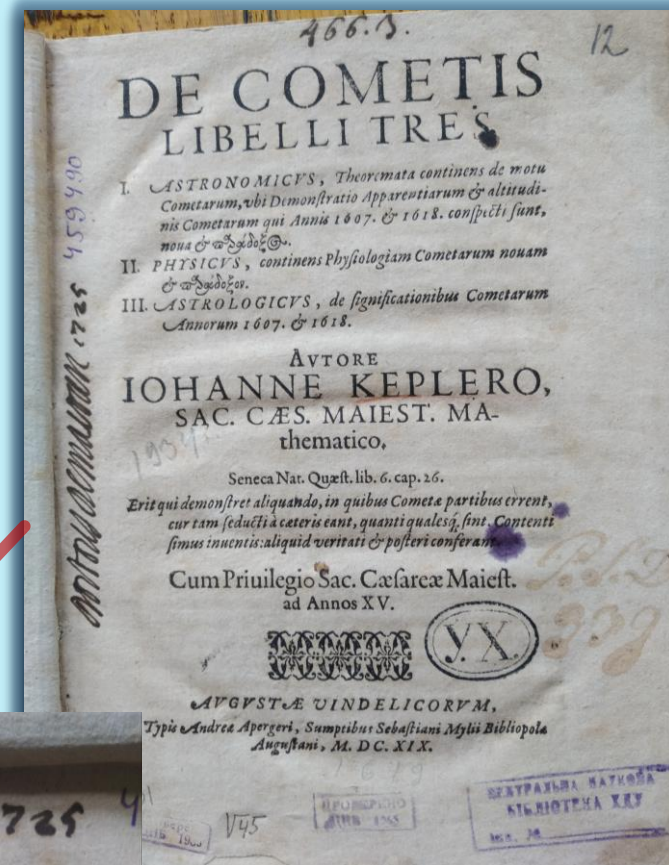 466.3.
12
DE COMETIS
LIBELLI TRES
I. ASTRONOMICVS, Theoremata continens de motu
Cometarum, vbi Demonstratio Apparentiarum & altitudi-
nis Cometarum qui Annis 1607. & 1618. conspecti sunt,
noua &
II. PHYSICVS, continens Physiologiam Cometarum nouam
&
III. ASTROLOGICVS, de significationibus Cometarum
Annorum 1607. & 1618.
AVTORE
IOHANNE KEPLERO,
SAC. CÆS. MAIEST. MA-
thematico.
Seneca Nat. Quæst. lib. 6. cap. 26.
Erit qui demonstret aliquando, in quibus Cometæ partibus errent,
cur tam seducti à cæteris eant, quanti qualesq́; sint. Contenti
simus inuentis: aliquid veritati & posteri conferant.
Cum Priuilegio Sac. Cæsareæ Maiest.
ad Annos XV.
У.Х.
AVGVSTÆ VINDELICORVM,
Typis Andreæ Apergeri, Sumptibus Sebastiani Mylii Bibliopolæ
Augustani, M. DC. XIX.
V45
ПРОВЕРЕНО
ЦНБ 1965
ЦЕНТРАЛЬНА НАУКОВА
БІБЛІОТЕКА ХДУ
1725 459490
725